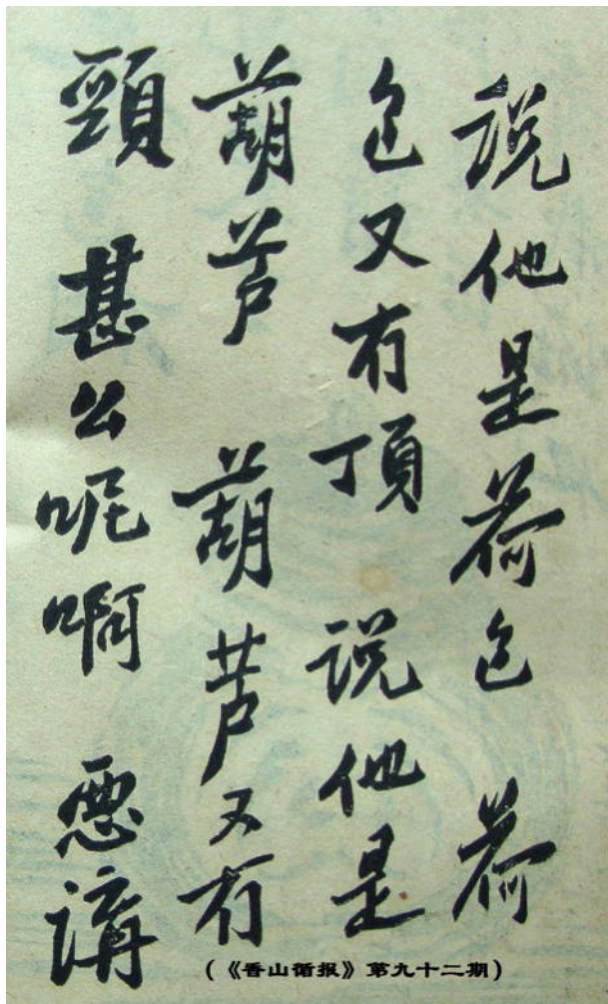 说他是荷包 荷
包又有顶 说他是
葫芦 葫芦又有
頸 甚么呢啊 恶講
(《香山循报》第九十二期)